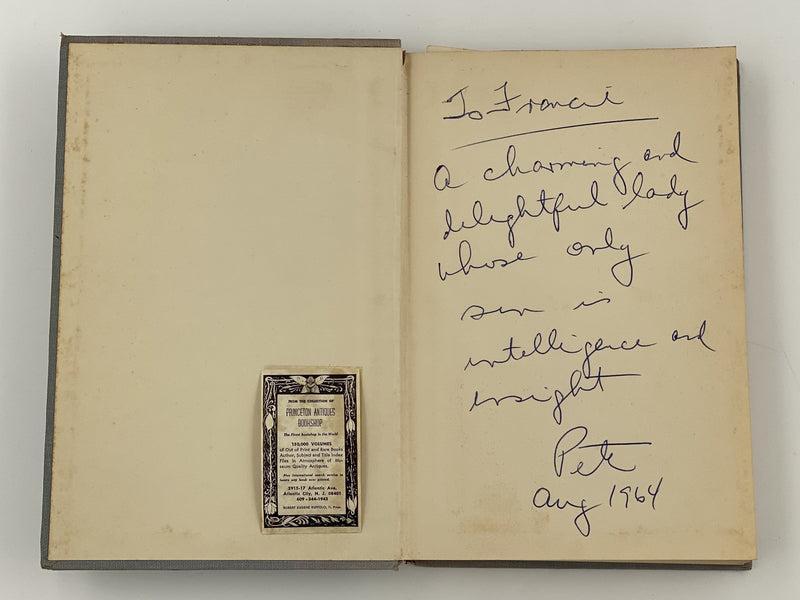 FROM THE COLLECTION OF
PRINCETON ANTIQUES
BOOKSHOP
The Finest bookshop in the World
150,000 VOLUMES
of Out of Print and Rare Books
Author, Subject and Title Index
Files in Atmosphere of Mu-
seum Quality Antiques.
Plus international search service to
locate any book ever printed.
2915-17 Atlantic Ave.
Atlantic City, N. J. 08401
609-344-1943
ROBERT EUGENE RUFFOLO, II, Pres.
To Francie
A charming and
delightful lady
whose only
sin is
intelligence and
insight
Pete
Aug 1964